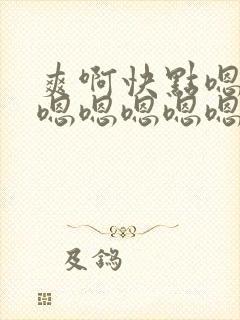 爽啊快點嗯
嗯嗯嗯嗯嗯
及鎢